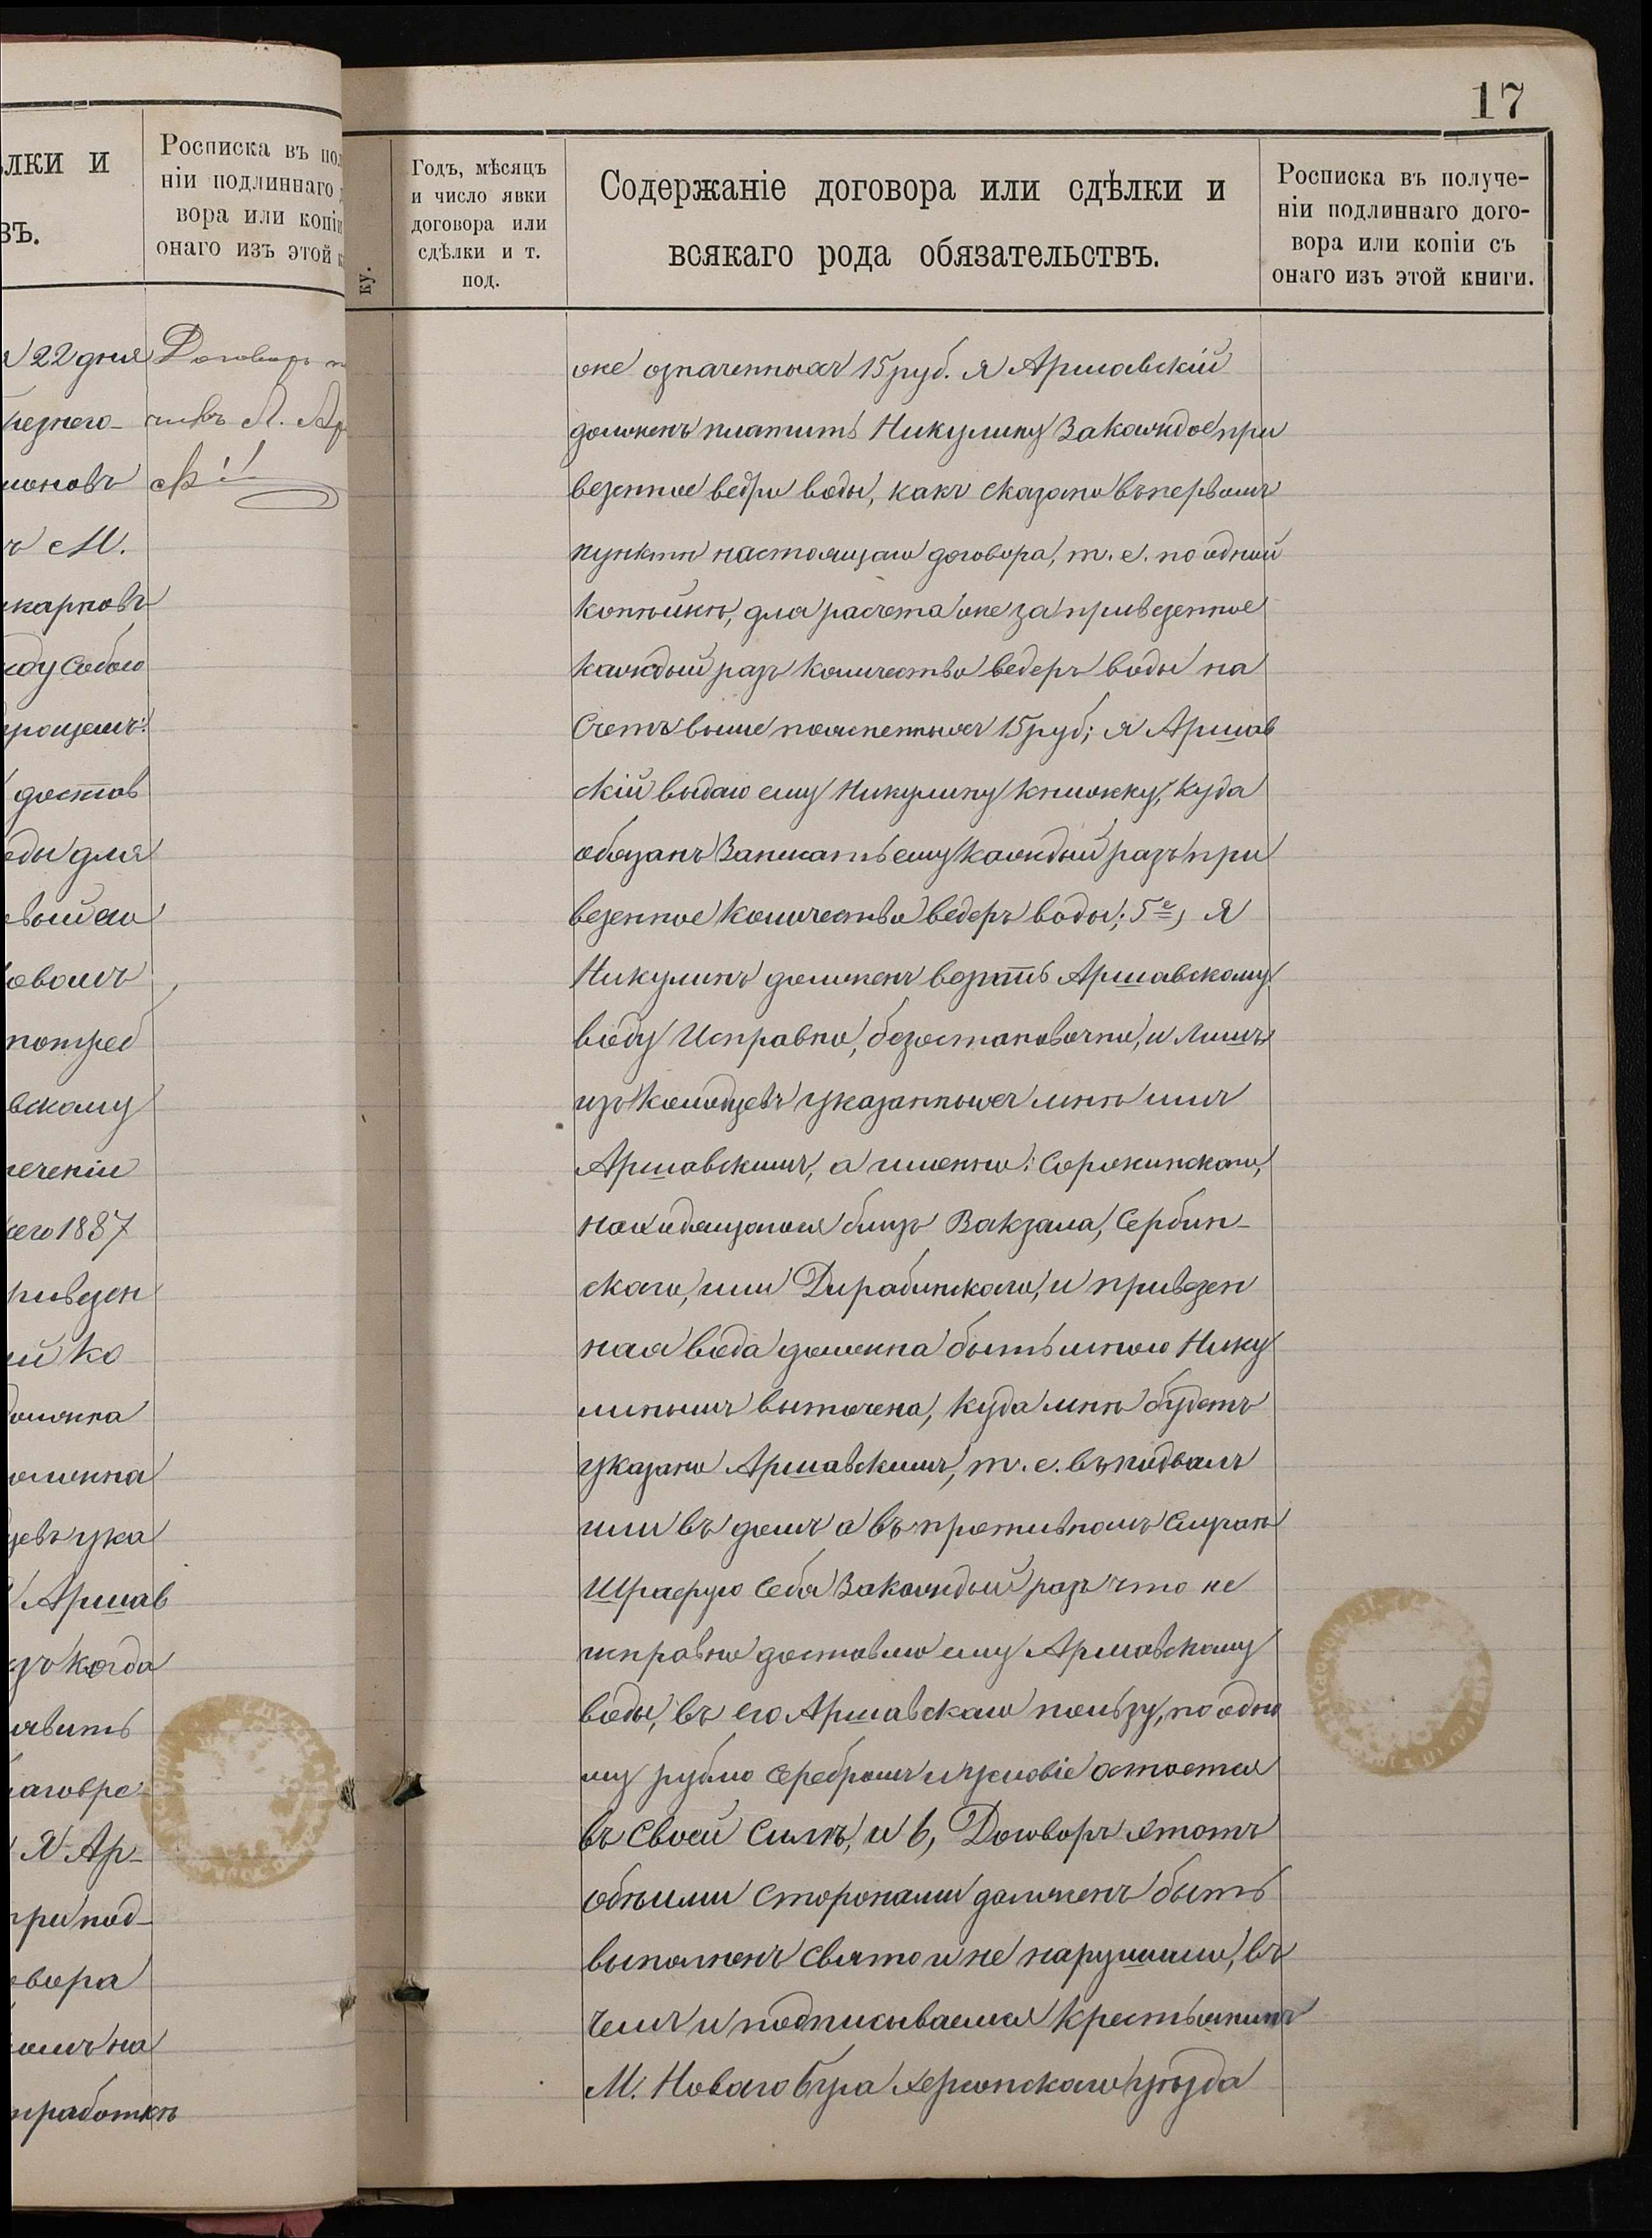 17
лки и
въ.
Росписка въ пол
ніи подлиннаго д
вора или копіи
онаго изъ этой к
ку.
Годъ, мѣсяцъ
и число явки
договора или
сдѣлки и т.
под.
Содержаніе договора или сдѣлки и
всякаго рода обязательствъ.
Росписка въ получе-
ніи подлиннаго дого-
вора или копіи съ
онаго изъ этой книги.
22 дня
Договоръ п
чилъ Л. Ар
М.
карповъ
ду собою
достов
ды для
потреб
вскому
течении
его 1887
ривезен
й ко
должна
цевъ ука
Аршав
зъ когда
авить
лаговре
Я Ар-
при под-
вора
на
работкѣ
же означенныхъ 15 руб. я Аршавскій
долженъ платить Никулину за каждое при
везенное ведро воды, какъ сказано въ первомъ
пунктѣ настоящаго договора, т. е. по одной
копѣйкѣ, для расчета же за привезенное
каждый разъ количество ведеръ воды на
счетъ выше поясненныхъ 15 руб; я Аршав
скій выдаю ему Никулину книжку, куда
обязанъ записать ему каждый разъ при
везенное количество ведеръ воды; 5е, Я
Никулинъ долженъ возить Аршавскому
воду исправно, безостановочно, и лишь
изъ колодцевъ указанныхъ мнѣ имъ
Аршавскимъ, а именно: Сорокинскаго,
находящагося близъ Вакзала, Сербин-
скаго, или Дирабинскаго, и привезен
ная вода должна быть мною Нику
линымъ выточена, куда мнѣ будетъ
указано Аршавскимъ, т. е. въ подвалъ
или въ домъ а въ противномъ случаѣ
Штрафую себя за каждый разъ что не
исправно доставлю ему Аршавскому
воды, въ его Аршавскаго пользу, по одно
му рублю серебромъ и условіе остоется
въ своей силѣ, и 6, Договоръ этотъ
обѣими сторонами долженъ быть
выполненъ свято и не нарушимо, въ
чемъ и подписываемся крестьянинъ
М. Новаго Буга Херсонскаго уѣзда